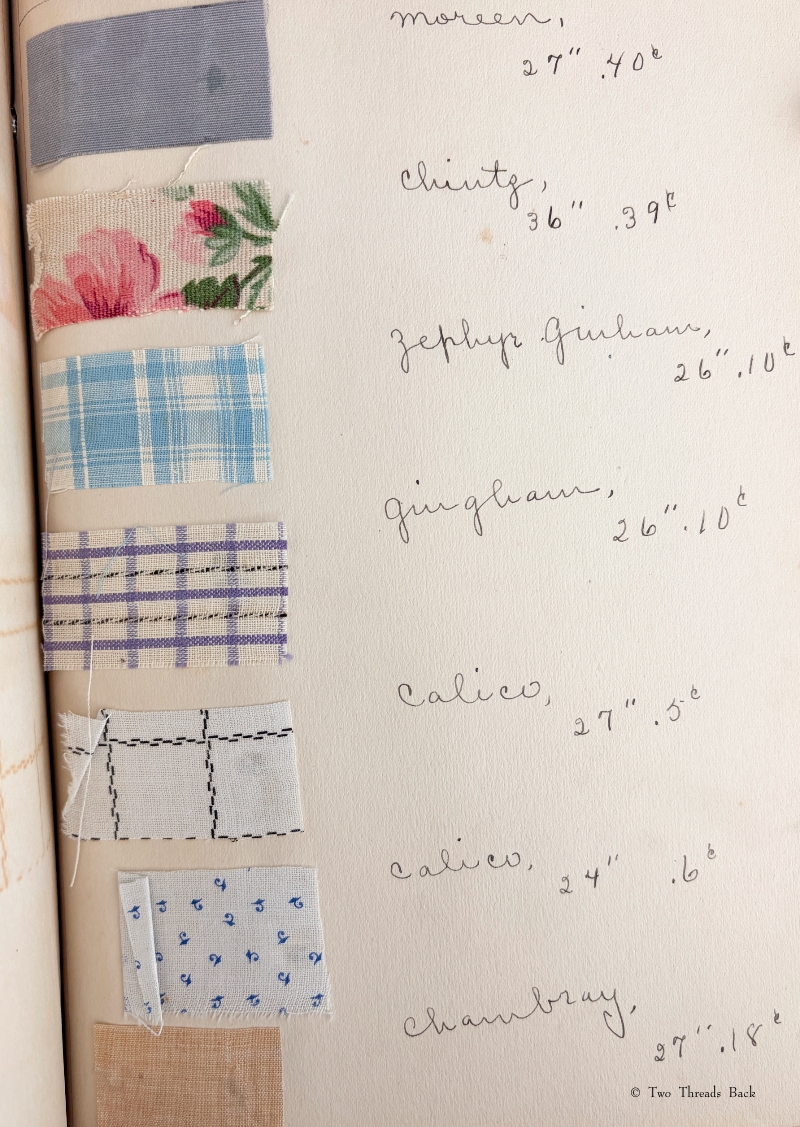 moreen,
27" .40¢
Chintz,
36" .39¢
Zephyr Ginham,
26" .10¢
gingham,
26" .10¢
Calico,
27" .5¢
Calico,
24" .6¢
Chambray,
27" .18¢
© Two Threads Back